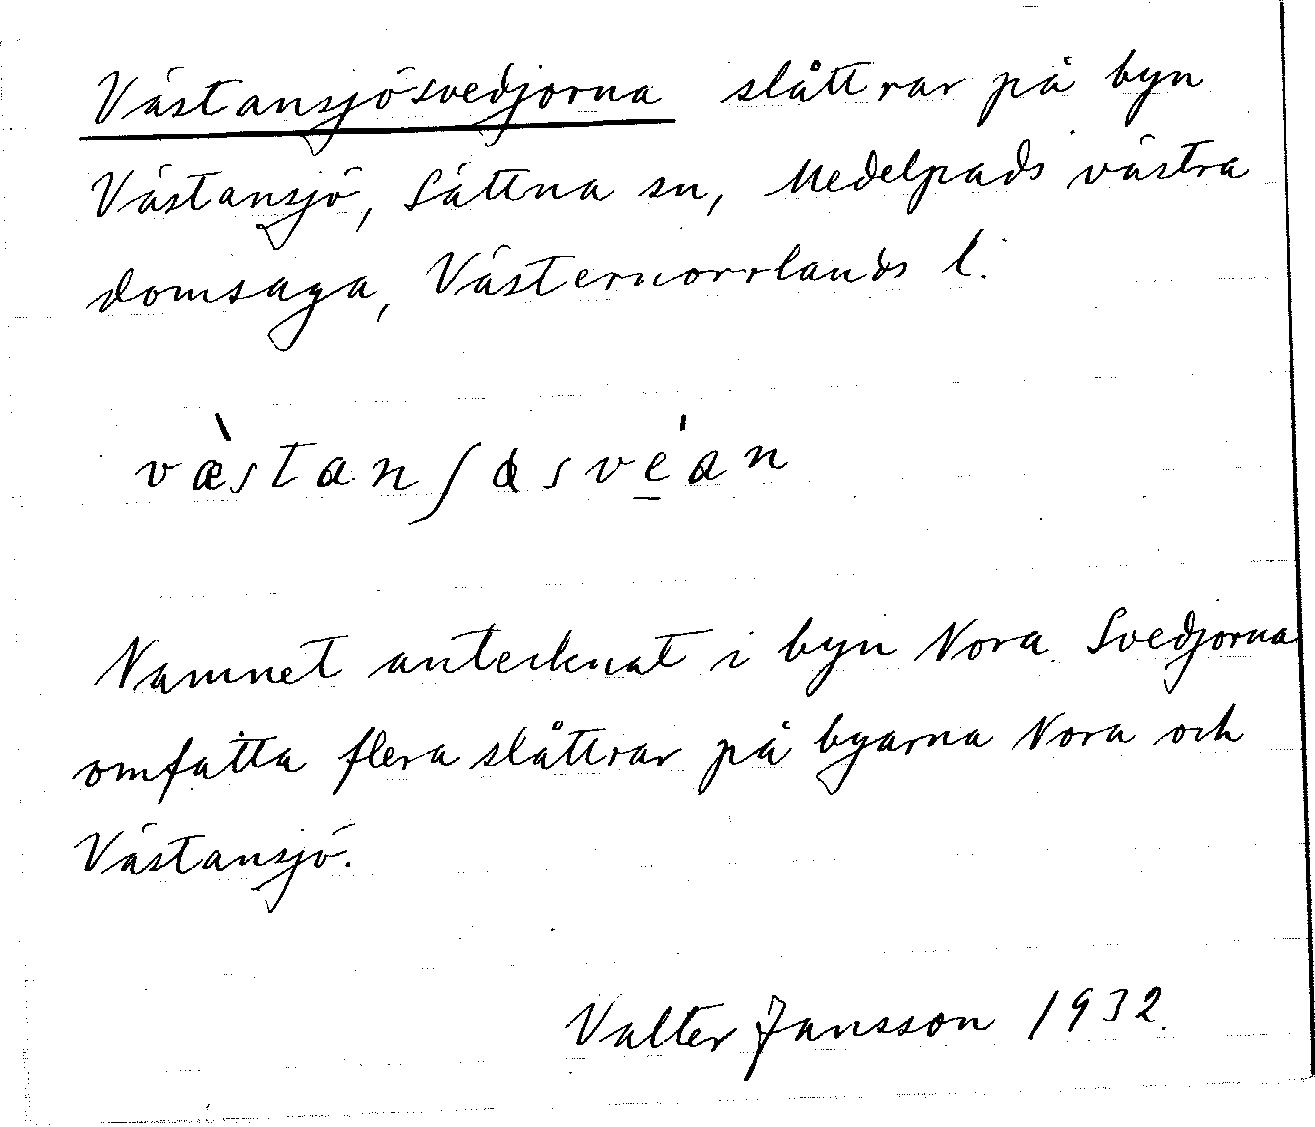 Västansjösvedjorna slåttrar på byn
Västansjö, Sättna sn, Medelpads västra
domsaga, Västernorrlands l.
væ̀stanʃɑsvé̠an
Namnet antecknat i byn Nora. Svedjorna
omfatta flera slåttrar på byarna Nora och
Västansjö.
Valter Jansson 1932.